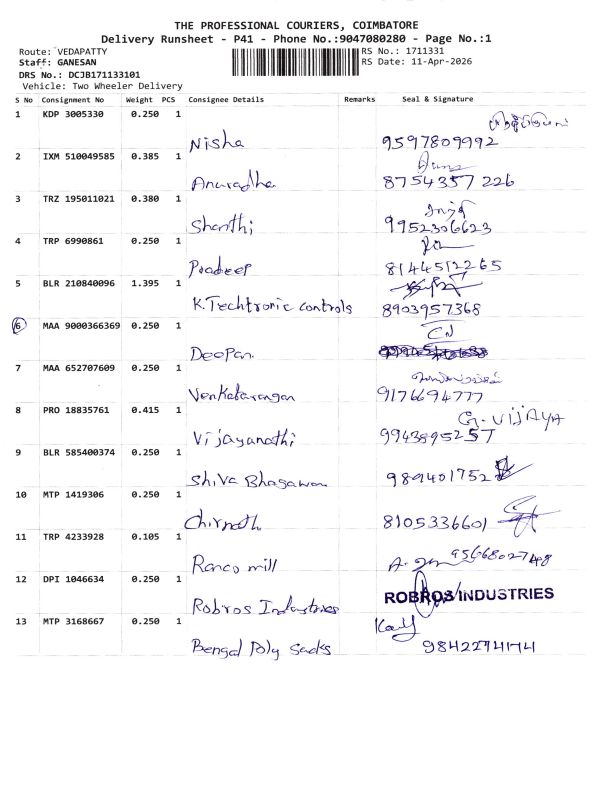 THE PROFESSIONAL COURIERS, COIMBATORE
Delivery Runsheet - P41 - Phone No.:9047080280 - Page No.:1
Route: VEDAPATTY RS No.: 1711331
Staff: GANESAN RS Date: 11-Apr-2026
DRS No.: DCJB171133101
Vehicle: Two Wheeler Delivery
S No Consignment No Weight PCS Consignee Details Remarks Seal & Signature
1 KDP 3005330 0.250 1
Nisha 9597809992
2 IXM 510049585 0.385 1
Anuradha 8754357226
3 TRZ 195011021 0.380 1
Shanthi 9952306623
4 TRP 6990861 0.250 1
Pradeep 8144512265
5 BLR 210840096 1.395 1
K.Techtronic controls 8903957368
6 MAA 9000366369 0.250 1 CN
Deepan
7 MAA 652707609 0.250 1
Venkatarangan 9176694777
8 PRO 18835761 0.415 1 G. VIJAYA
Vijayanathi 9943895257
9 BLR 585400374 0.250 1
Shiva Bhagawan 989401752
10 MTP 1419306 0.250 1
8105336601
11 TRP 4233928 0.105 1
Ranco mill 9566802748
12 DPI 1046634 0.250 1 ROBROS INDUSTRIES
Robros Industries
13 MTP 3168667 0.250 1
Bengal Poly Sacks 9842274174